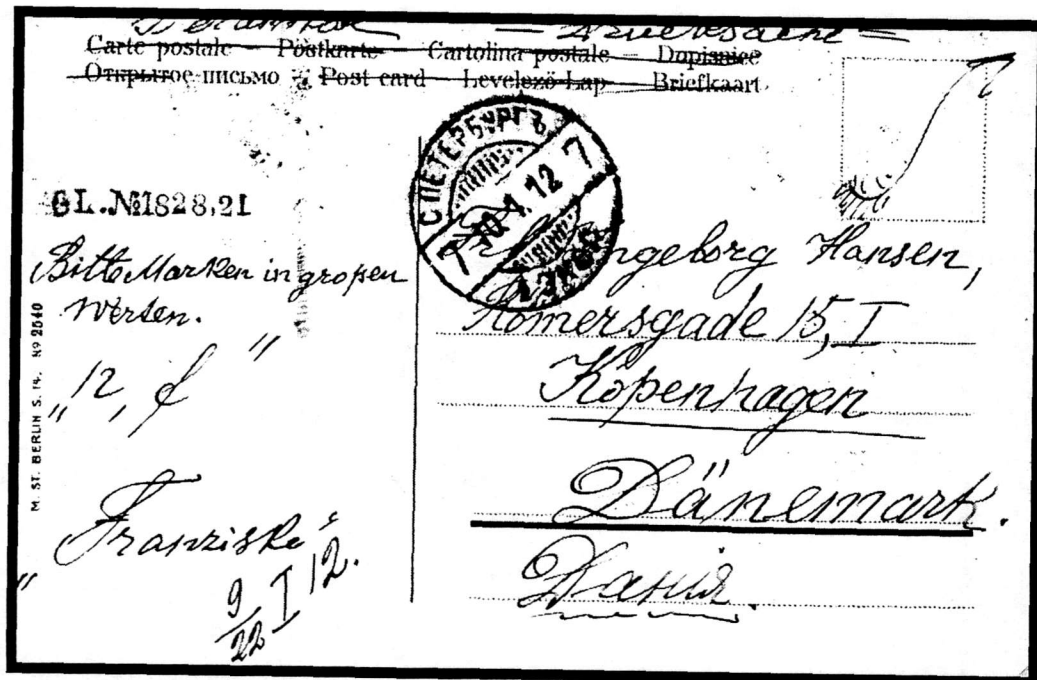 — Drucksache —
Carte postale — Postkarte — Cartolina postale — Dopisnice
Открытое письмо — Post card — Levelező-Lap — Briefkaart
С ПЕТЕРБУРГЪ
7 10.1.12 7
GL.№1828,21
Bitte Marken in großen
Werten.
"12, f"
"Franziska"
9/22 I 12.
M. ST. BERLIN S. 14. Nº 2540
Ingeborg Hansen,
Römersgade 15, I
Kopenhagen
Dänemark.
Данія.